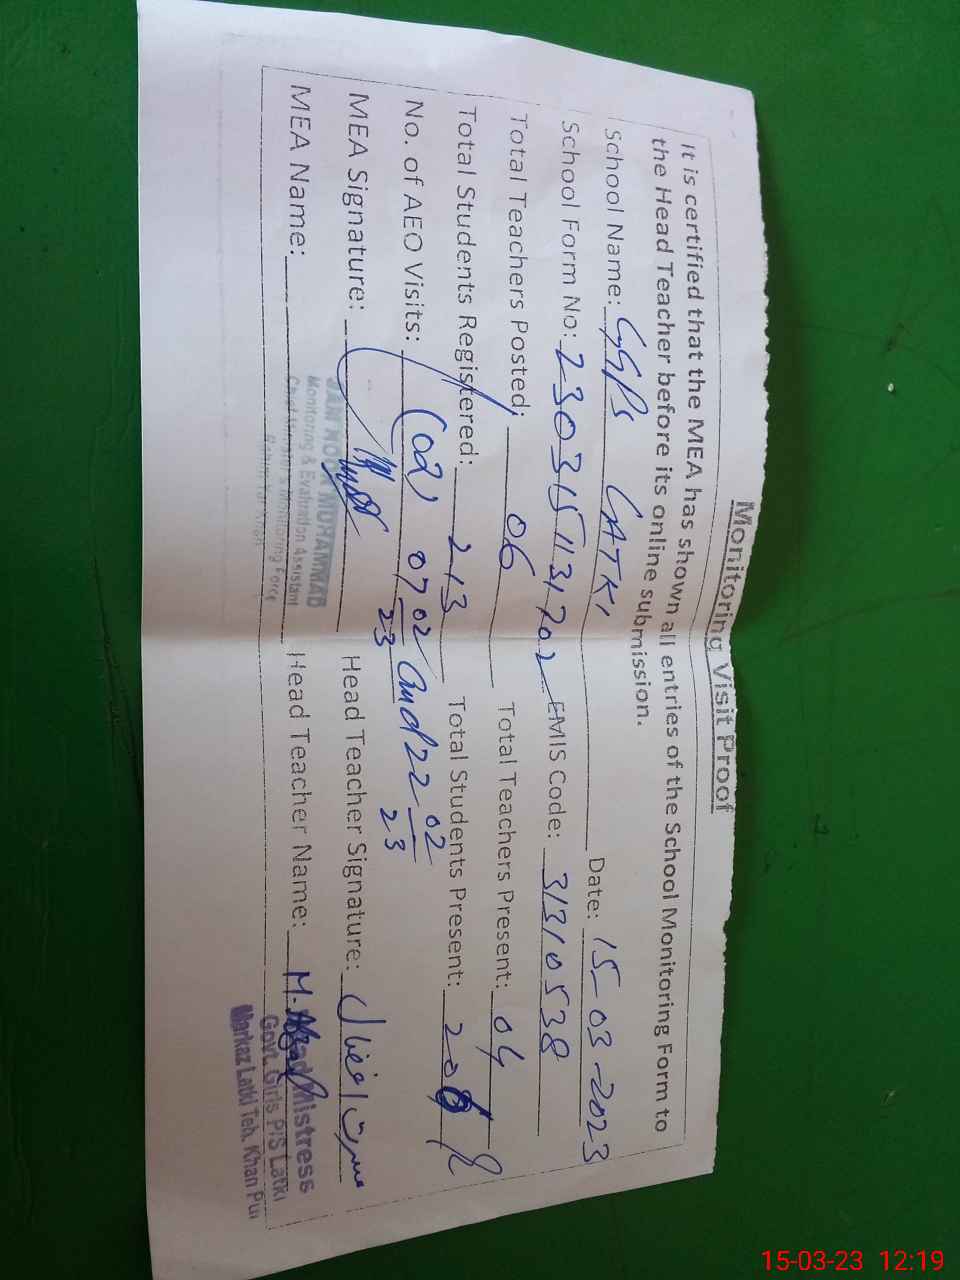 Monitoring Visit Proof
It is certified that the MEA has shown all entries of the School Monitoring Form to
the Head Teacher before its online submission.
School Name: GGPS LATKI Date: 15-03-2023
School Form No: 2303151131702 EMIS Code: 31310538
Total Teachers Posted: 06 Total Teachers Present: 04
Total Students Registered: 213 Total Students Present: 206
No. of AEO Visits: (02) 07 02 23 and 22 02 23
MEA Signature: Head Teacher Signature: مسرت افضل
MEA Name: Head Teacher Name: M. Afzal
JAM NOOR MUHAMMAD
Monitoring & Evaluation Assistant
Chief Minister's Monitoring Force
Rahim Yar Khan
Head Mistress
Govt. Girls P/S Latki
Markaz Latki Teh. Khan Pur
15-03-23 12:19